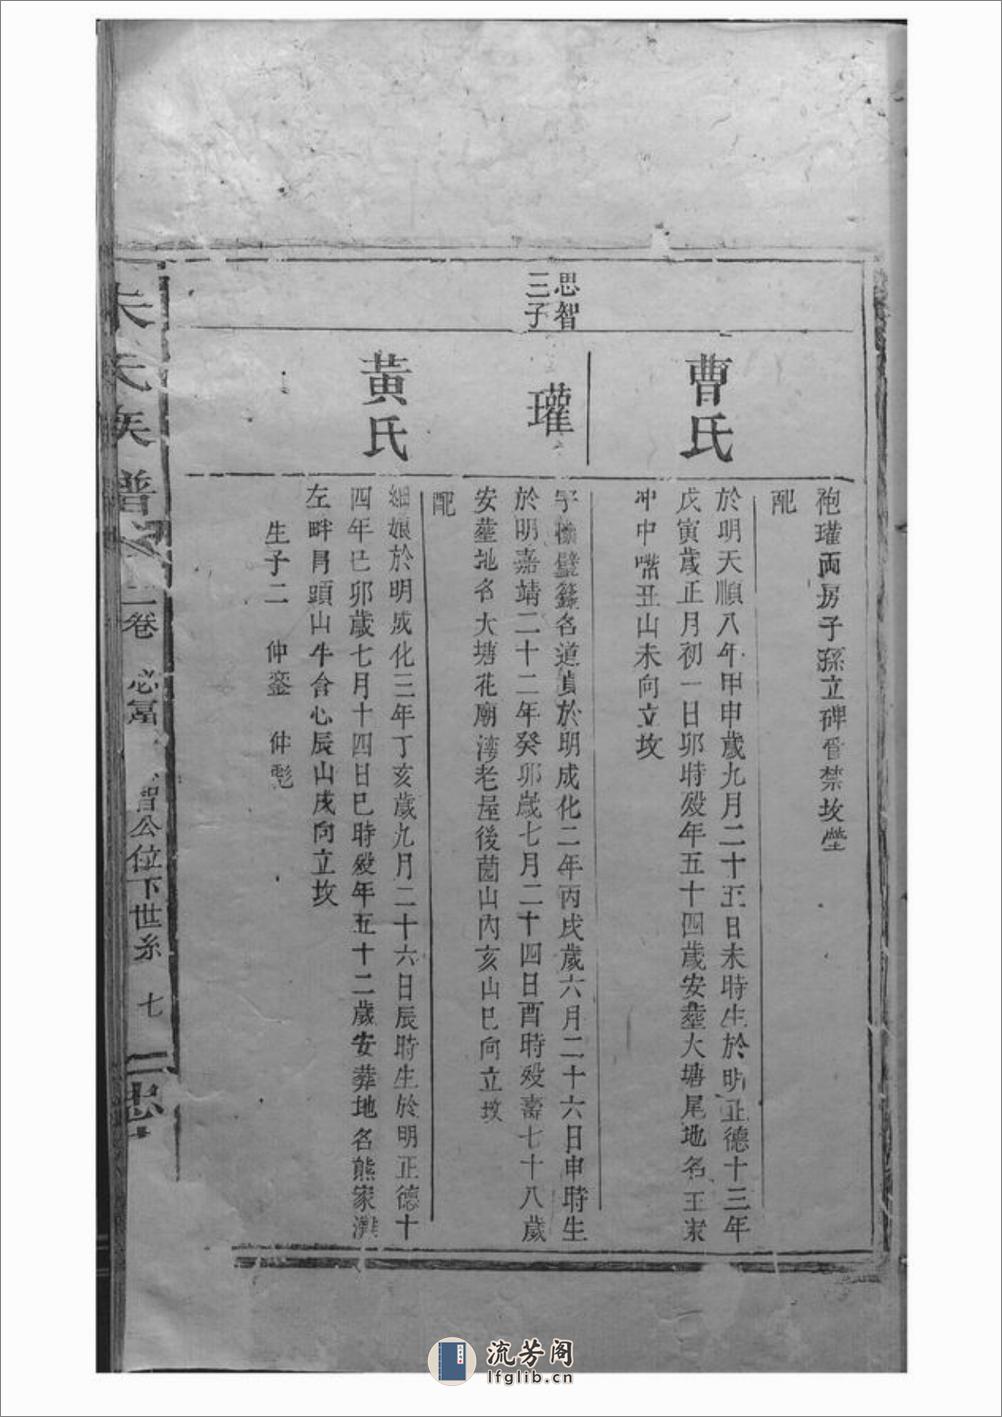 袍瓘両房子孫立碑眷禁坟塋
配
曹氏
於明天順八年甲申歲九月二十五日未時生於明正德十三年
戊寅歲正月初一日卯時殁年五十四歲安塟大塘尾地名王家
冲中嘴丑山未向立坟
思智
三子
瓘
字 璧 名道貞於明成化二年丙戌歲六月二十六日申時生
於明嘉靖二十二年癸卯歲七月二十四日酉時殁壽七十八歲
安塟地名大塘花廟湾老屋後園山內亥山巳向立坟
配
黃氏
細娘於明成化三年丁亥歲九月二十六日辰時生於明正德十
四年己卯歲七月十四日巳時殁年五十二歲安葬地名熊家
左畔 頭山牛 心辰山戌向立坟
生子二 仲鑾 仲彪
朱氏族譜 二卷 必富 智公位下世系 七 忠
流芳阁
lfglib.cn